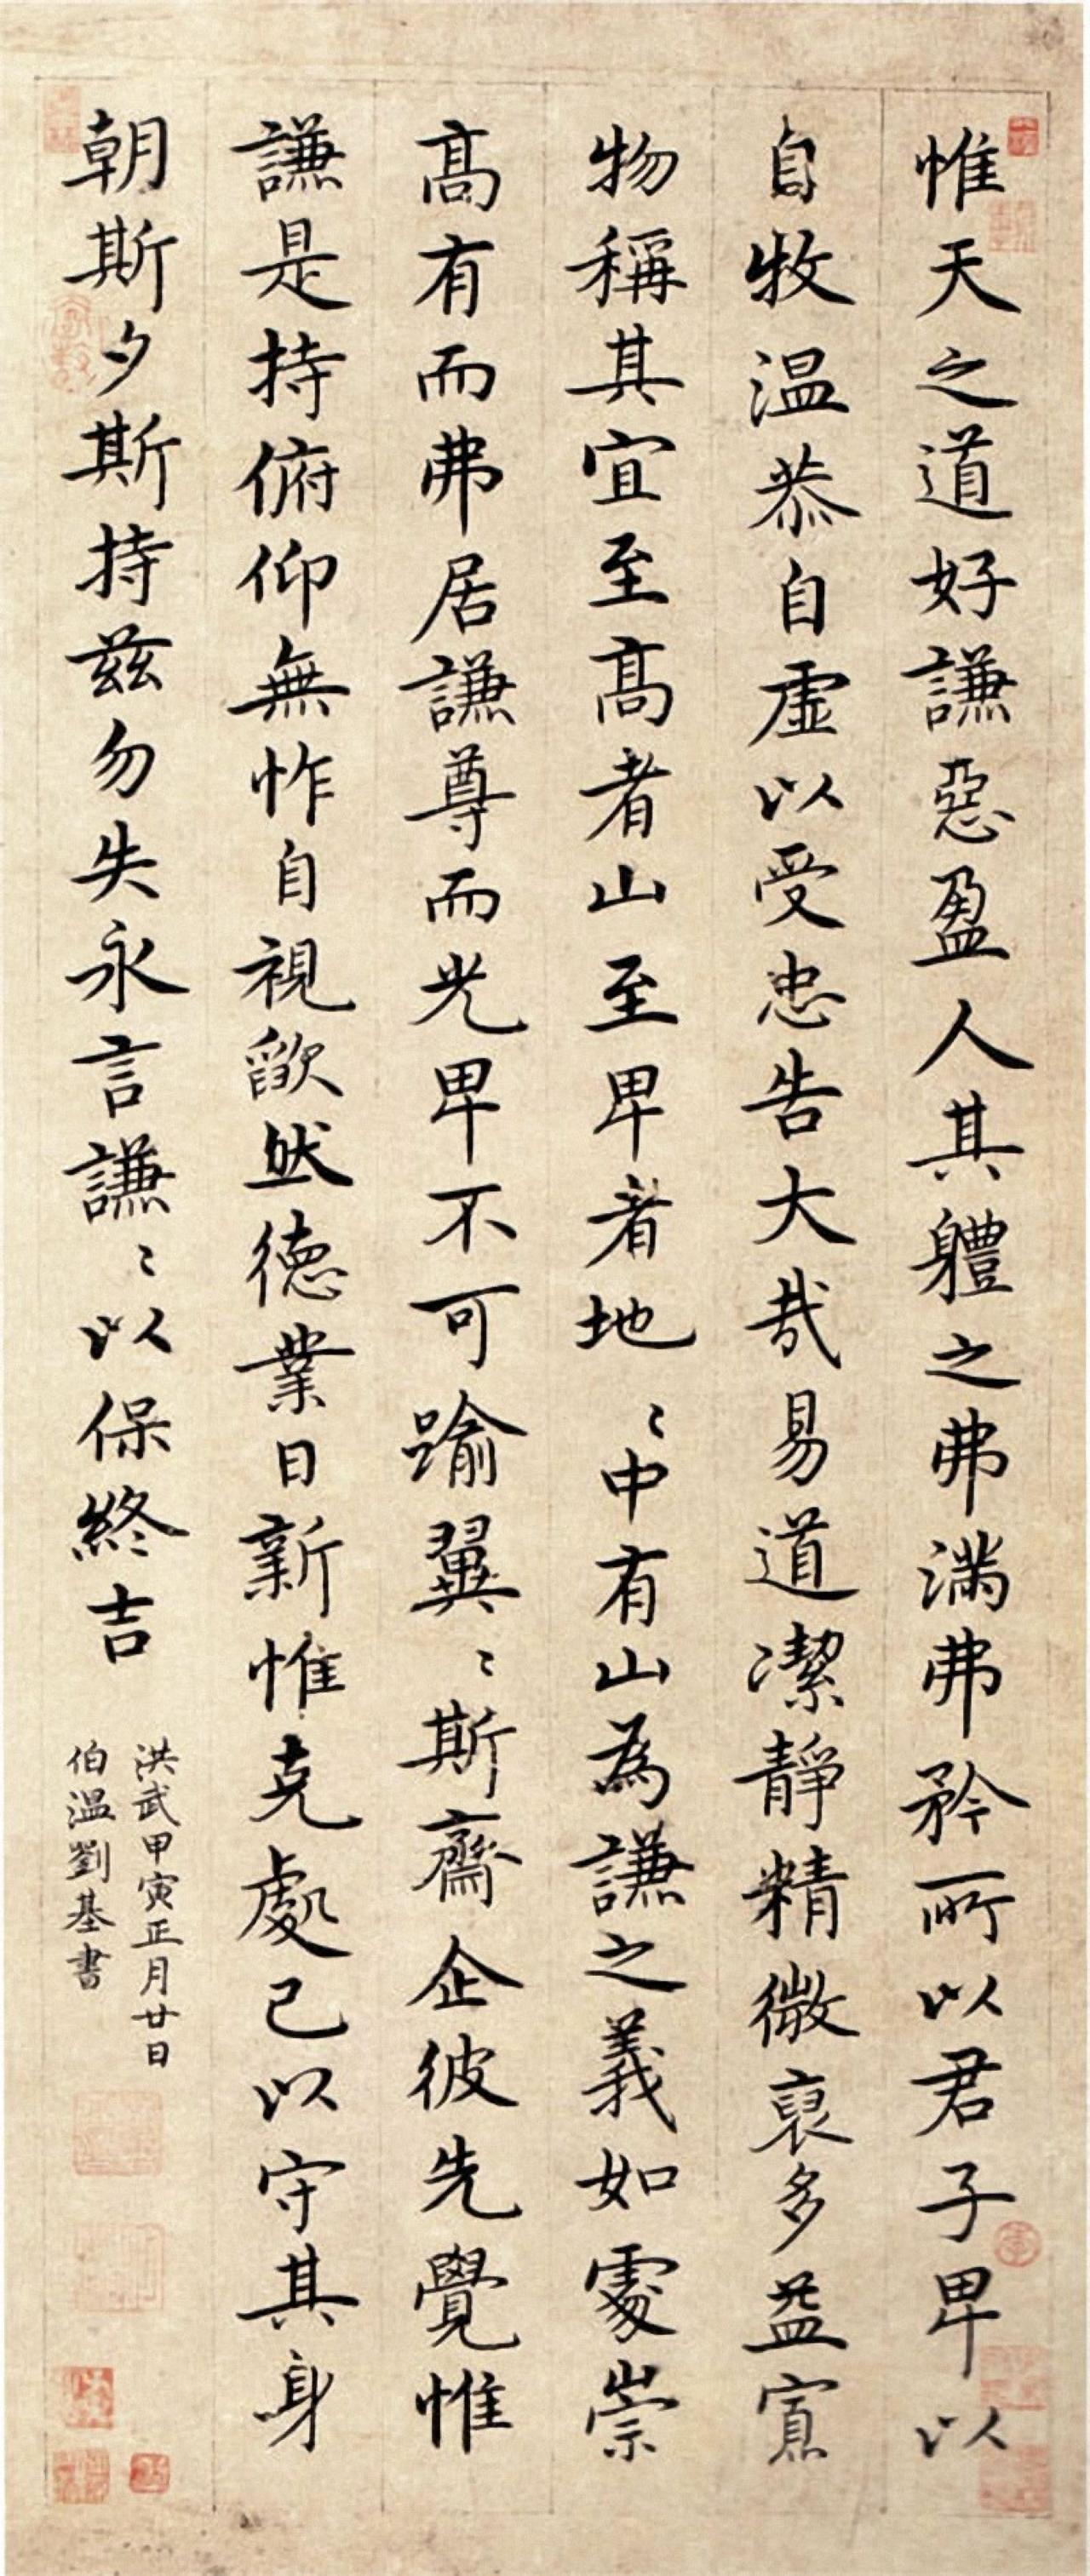 惟天之道好謙惡盈人其軆之弗滿弗矜所以君子卑以
自牧温恭自虛以受忠告大哉易道潔靜精微裒多益寡
物稱其宜至髙者山至卑者地〻中有山為謙之義如處崇
髙有而弗居謙尊而光卑不可踰翼〻斯齋企彼先覺惟
謙是持俯仰無怍自視歉然德業日新惟克處己以守其身
朝斯夕斯持兹勿失永言謙〻以保終吉
洪武甲寅正月廿日
伯温劉基書